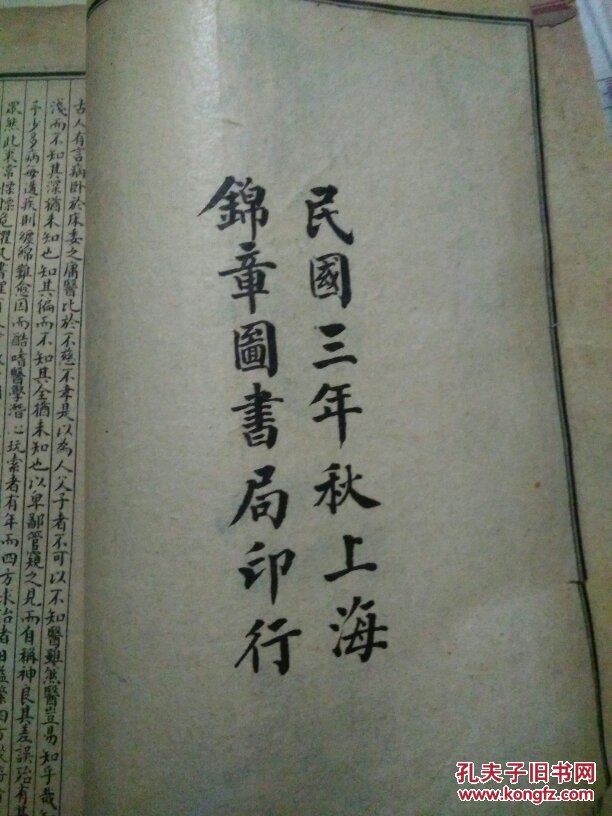 民國三年秋上海
錦章圖書局印行
古人有言病卧於床委之庸醫比於不慈不孝是以為人父子者不可以不知醫雖然醫豈易知乎哉
淺而不知其深猶未知也知其偏而不知其全猶未知也以卑鄙管窺之見而自稱神良其差誤治有其
予少多病每遘疾則纏綿難愈因而酷嗜醫學潛心玩索者有年而四方求治者日益繁四方
孔夫子旧书网
www.kongfz.com